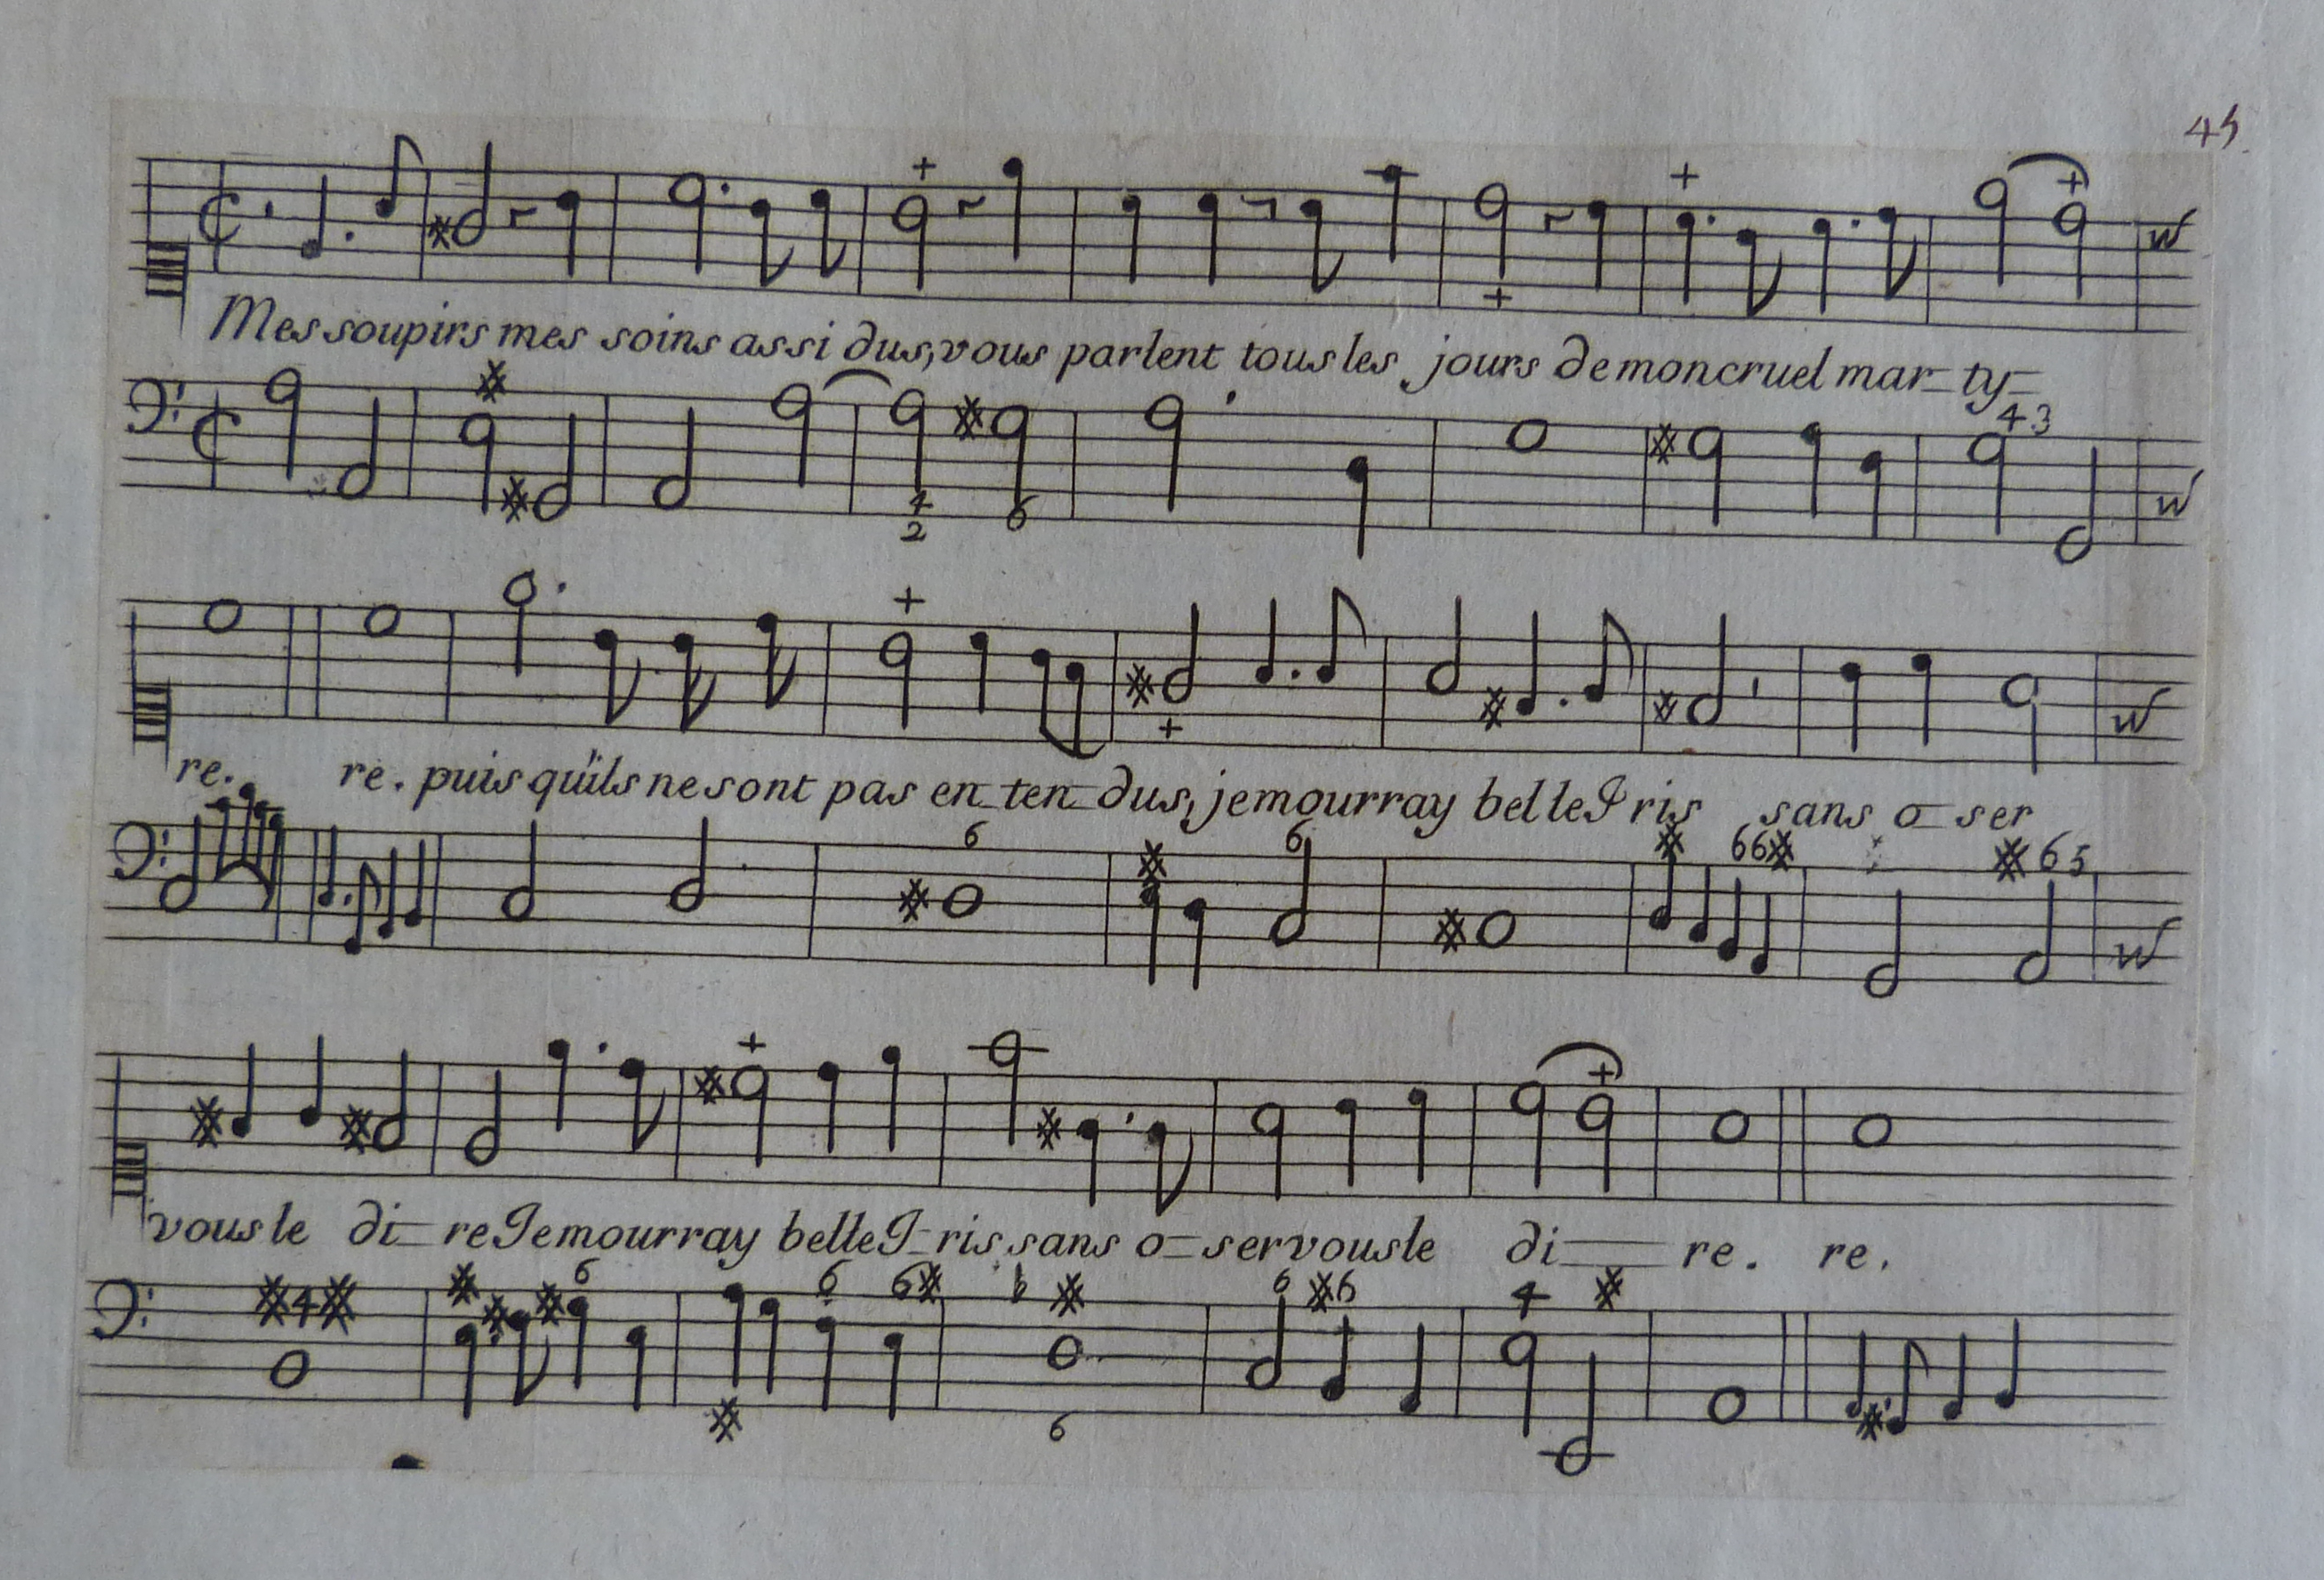 45
Mes soupirs mes soins assi dus, vous parlent tous les jours de mon cruel mar_ ty_
4 3
4 6
2
re. re. puis qu'ils ne sont pas en_ ten_ dus, je mourray belle I ris sans o_ ser
6 6 6 6 6 5
vous le di_ re Je mourray belle I_ ris, sans o_ ser vous le di_ re. re.
4 6 6 6 b 6 6 4
6